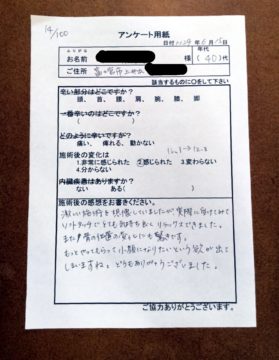 14/100
アンケート用紙
日付 2024年6月15日
ふりがな
お名前
年代
(40)代
ご住所 富士宮市上井出
該当するものに〇をして下さい
辛い部分はどこですか?
頭、首、腰、肩、腕、膝、脚
一番辛いのはどこですか?
どのように辛いですか?
痛い、痺れる、動かない
施術後の変化は
1.非常に感じられた ②感じられた 3.変わらない
4.分からない
内臓疾患はありますか?
ない ある( )
施術後の感想をお書きください。
激しい施術を想像していましたが実際に受けてみて
ソフトタッチでとても気持ち良くリラックスできました。
また声帯の位置の変化にも驚きです。
もっとやってもらって小顔になりたいという欲が出て
しまいますね。どうもありがとうございました。
ご協力ありがとうございます。